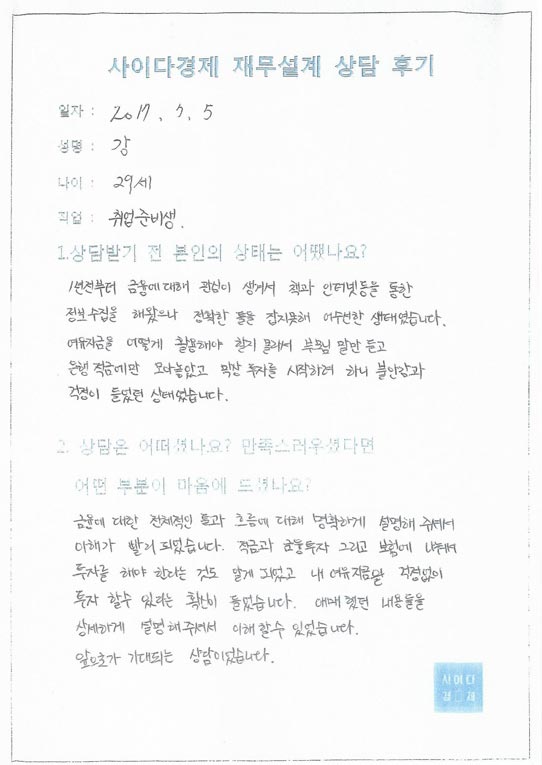 사이다경제 재무설계 상담 후기
일자 : 2017. 7. 5
성명 : 강
나이 : 29세
직업 : 취업준비생.
1.상담받기 전 본인의 상태는 어땠나요?
1년전부터 금융에 대해 관심이 생겨서 책과 인터넷등을 통한
정보수집을 해왔으나 정확한 틀을 잡지못해 어수선한 상태였습니다.
여유자금을 어떻게 활용해야 할지 몰라서 부모님 말만 듣고
은행 적금에만 모아놓았고 막상 투자를 시작하려 하니 불안감과
걱정이 들었던 상태였습니다.
2. 상담은 어떠셨나요? 만족스러우셨다면
어떤 부분이 마음에 드셨나요?
금융에 대한 전체적인 틀과 흐름에 대해 명확하게 설명해 주셔서
이해가 빨리 되었습니다. 적금과 금융투자 그리고 보험에 나눠서
투자를 해야 한다는 것도 알게 되었고 내 여유자금을 걱정없이
투자 할수 있다는 확신이 들었습니다. 애매했던 내용들을
상세하게 설명해주셔서 이해할수 있었습니다.
앞으로가 기대되는 상담이었습니다.
사이다
경제